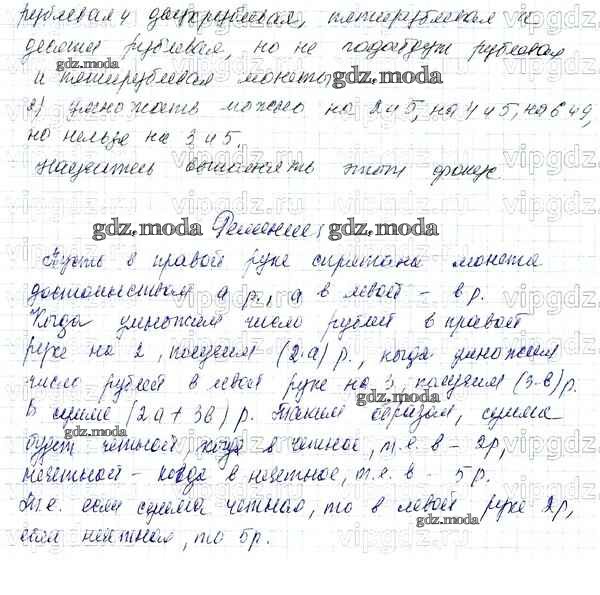 рублевая и двухрублевая, пятирублевая и
десяти рублевая, но не подойдут рублевая
и пятирублевая монеты
gdz.moda
2) умножать можно на 2 и 5, на 4 и 5, на 6 и 9,
но нельзя на 3 и 5.
Научитесь выполнять этот фокус
gdz.moda
Решение:
gdz.moda
Пусть в правой руке спрятана монета
достоинством а р., а в левой - в р.
Когда умножим число рублей в правой
руке на 2, получим (2·а) р., когда умножим
число рублей в левой руке на 3, получим (3·в) р.
gdz.moda
В сумме (2а + 3в) р. Таким образом, сумма
будет четной, когда в четное, т.е. в - 2р,
gdz.moda
нечетной - когда в нечетное, т.е. в - 5р.
Т.е. если сумма четная, то в левой руке 2р,
gdz.moda
если нечетная, то 5р.